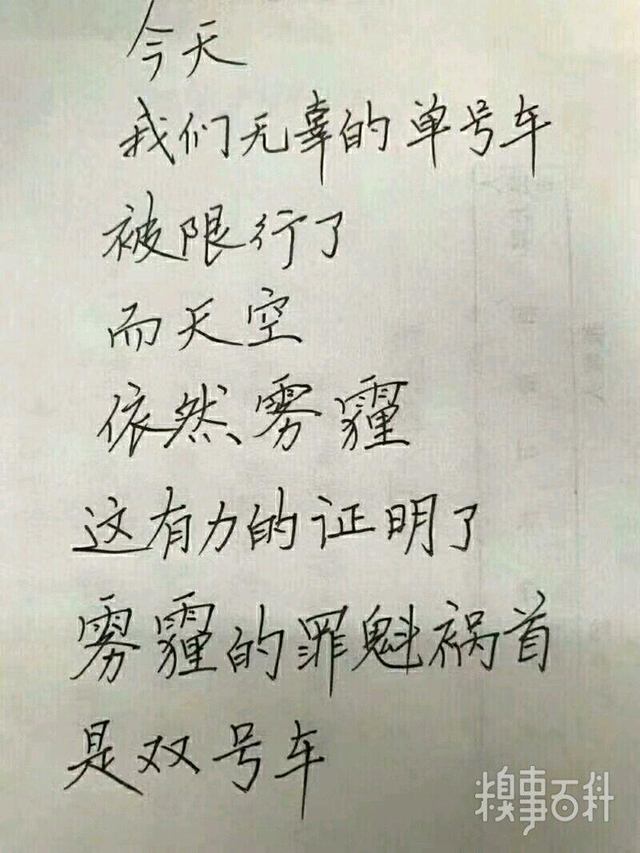 今天
我们无辜的单号车
被限行了
而天空
依然雾霾
这有力的证明了
雾霾的罪魁祸首
是双号车
糗事百科